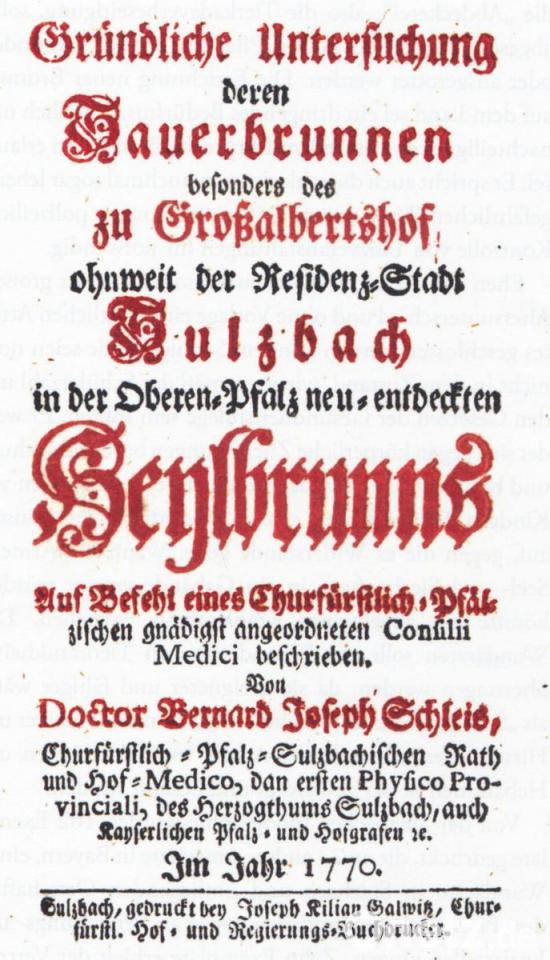 Gründliche Untersuchung
deren
Sauerbrunnen
besonders des
zu Großalbertshof
ohnweit der Residenz-Stadt
Sulzbach
in der Oberen-Pfalz neu-entdeckten
Heylbrunns
Auf Befehl eines Churfürstlich-Pfäl-
zischen gnädigst angeordneten Consilii
Medici beschrieben.
Von
Doctor Bernard Joseph Schleis,
Churfürstlich-Pfalz-Sulzbachischen Rath
und Hof-Medico, dan ersten Physico Pro-
vinciali, des Herzogthums Sulzbach, auch
Kayserlichen Pfalz- und Hofgrafen ꝛc.
Im Jahr 1770.
Sulzbach, gedruckt bey Joseph Kilian Galwitz, Chur-
fürstl. Hof- und Regierungs-Buchdrucker.